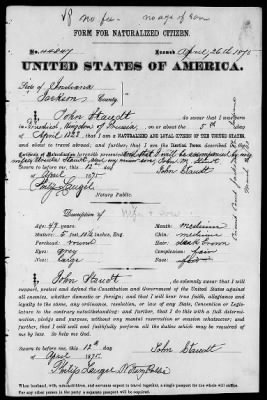 no fee — no age of son
FORM FOR NATURALIZED CITIZEN.
No. Issued April, 26th 1875
UNITED STATES OF AMERICA.
State of Indiana
Jackson County
I, John Staudt do swear that I was born
in Kingdom of Prussia, on or about the 5th day
of April that I am a NATURALIZED AND LOYAL CITIZEN OF THE UNITED STATES,
and about to travel abroad; and further, that I am the Identical Person described in the
Certificate of Naturalization herewith presented; and that I will be accompanied by my
wife Staudt and my minor son John
Sworn to before me, this 12th day
of April 1875 John Staudt
Philip Langel
Notary Public.
Description of wife & son
Age: 47 years Mouth: medium
Stature: 5 feet inches, Eng. Chin: medium
Forehead: round Hair: dark brown
Eyes: grey Complexion: fair
Nose: large Face:
I, John Staudt do solemnly swear that I will
support, protect and defend the Constitution and Government of the United States against
all enemies, whether domestic or foreign; and that I will bear true faith, allegiance and
loyalty to the same, any ordinance, resolution, or law of any State, Convention or Legislature
to the contrary notwithstanding; and further, that I do this with a full determination,
pledge and purpose, without any mental reservation or evasion whatsoever; and
further, that I will well and faithfully perform all the duties which may be required
of me by law. So help me God.
Sworn to before me, this 12th day John Staudt
of April 1875.
Philip Langel Notary Public
When husband, wife, minor children, and servants expect to travel together, a single passport for the whole will suffice.
For any other person in the party, a separate passport will be required.